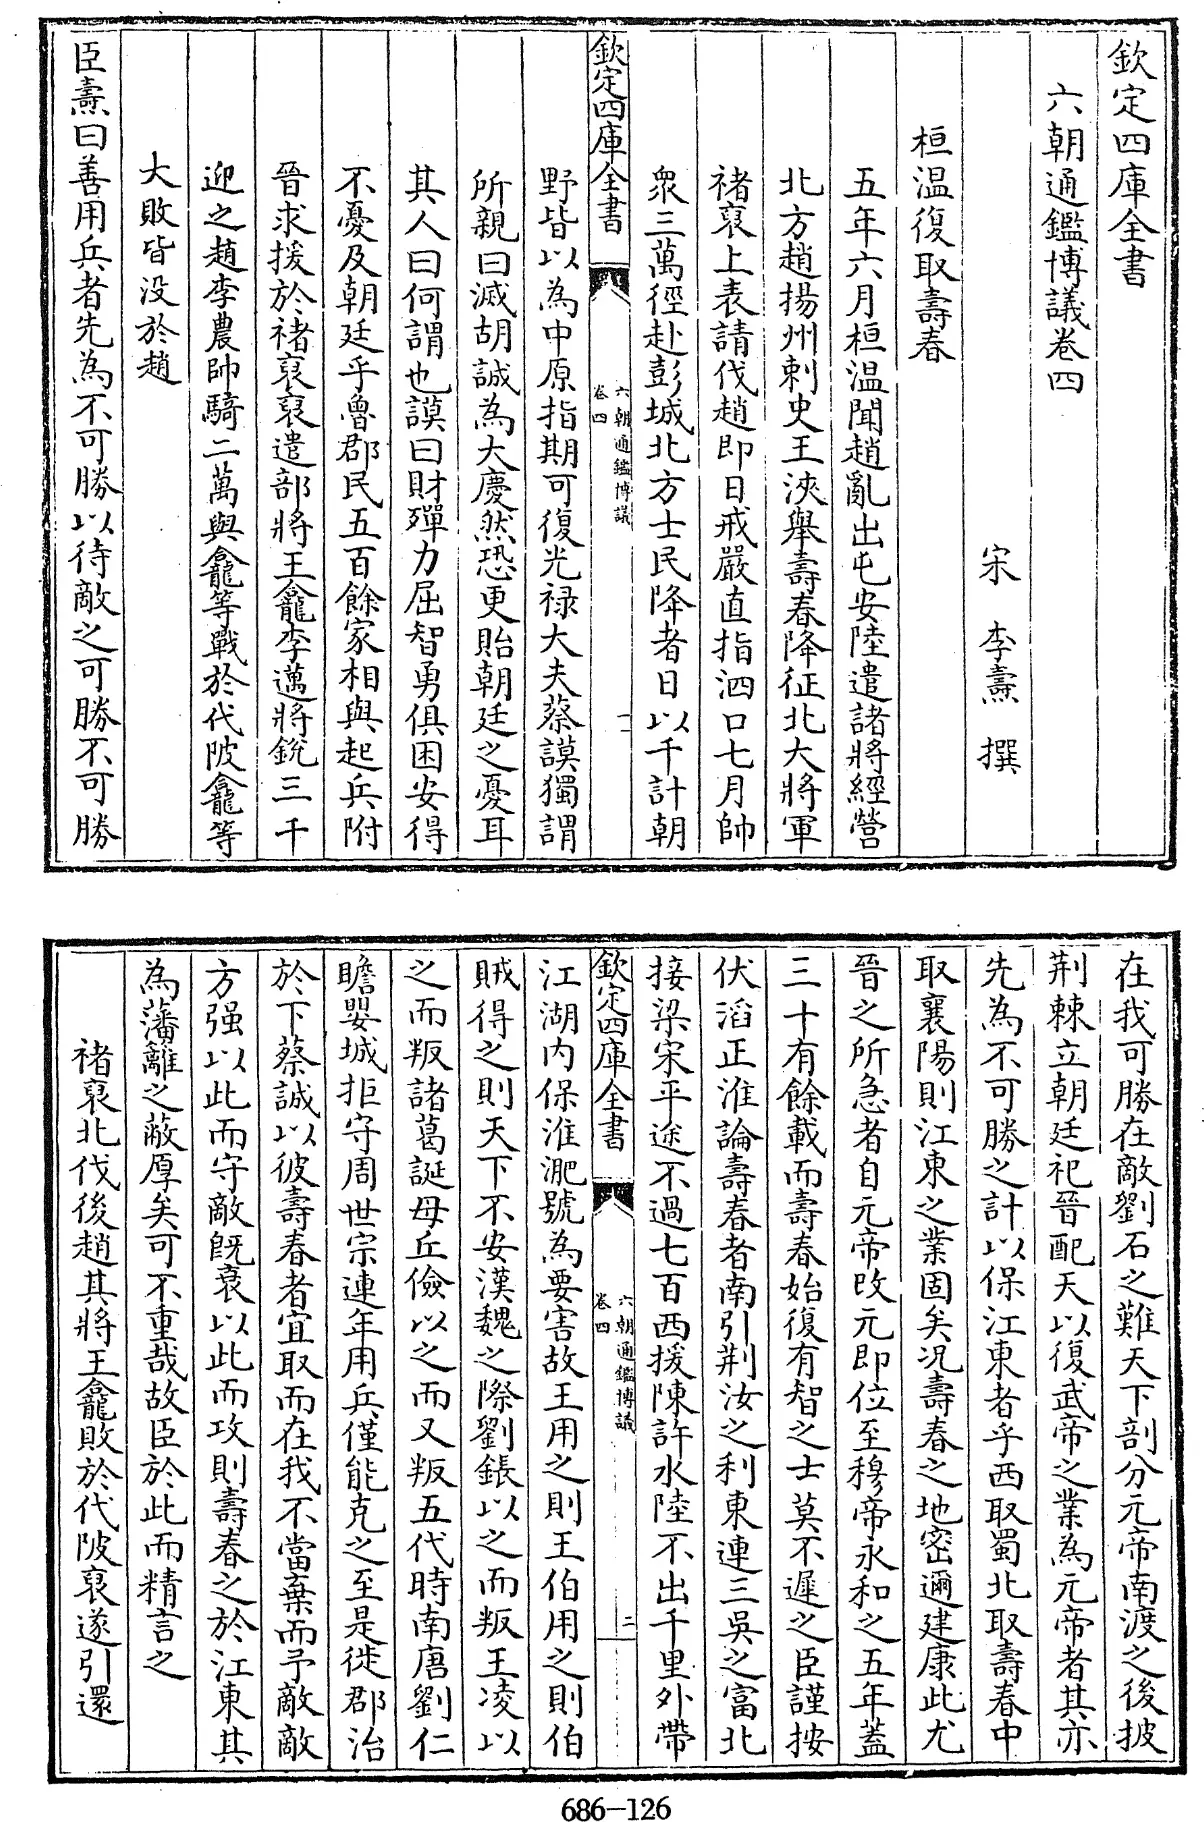 欽定四庫全書
六朝通鑑博議卷四
宋 李燾 撰
桓温復取壽春
五年六月桓温聞趙亂出屯安陸遣諸將經營
北方趙揚州刺史王浹舉壽春降征北大將軍
禇裒上表請伐趙即日戒嚴直指泗口七月帥
衆三萬徑赴彭城北方士民降者日以千計朝
欽定四庫全書
六朝通鑑博議
卷四
一
野皆以為中原指期可復光禄大夫蔡謨獨謂
所親曰滅胡誠為大慶然恐更貽朝廷之憂耳
其人曰何謂也謨曰財殫力屈智勇俱困安得
不憂及朝廷乎魯郡民五百餘家相與起兵附
晉求援於禇裒裒遣部將王龕李邁將銳三千
迎之趙李農帥騎二萬與龕等戰於代陂龕等
大敗皆没於趙
臣燾曰善用兵者先為不可勝以待敵之可勝不可勝
在我可勝在敵劉石之難天下剖分元帝南渡之後披
荆棘立朝廷祀晉配天以復武帝之業為元帝者其亦
先為不可勝之計以保江東者乎西取蜀北取壽春中
取襄陽則江東之業固矣况壽春之地密邇建康此尤
晉之所急者自元帝改元即位至穆帝永和之五年蓋
三十有餘載而壽春始復有智之士莫不遲之臣謹按
伏滔正淮論壽春者南引荆汝之利東連三吳之富北
接梁宋平途不過七百西援陳許水陸不出千里外帶
欽定四庫全書
六朝通鑑博議
卷四
二
江湖内保淮淝號為要害故王用之則王伯用之則伯
賊得之則天下不安漢魏之際劉鋹以之而叛王凌以
之而叛諸葛誕毋丘儉以之而又叛五代時南唐劉仁
瞻嬰城拒守周世宗連年用兵僅能克之至是徙郡治
於下蔡誠以彼壽春者宜取而在我不當棄而予敵敵
方强以此而守敵旣衰以此而攻則壽春之於江東其
為藩籬之蔽厚矣可不重哉故臣於此而精言之
禇裒北伐後趙其將王龕敗於代陂裒遂引還
686-126